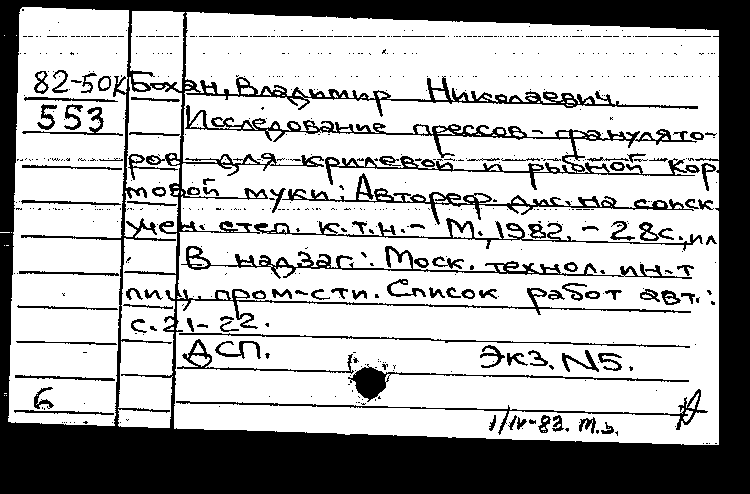 82-50К Бохан, Владимир Николаевич.
553 Исследование прессов-гранулято-
ров для крилевой и рыбной кор
мовой муки: Автореф. дис. на соиск.
учен. степ. к.т.н. - М., 1982. - 28с., ил
В надзаг.: Моск. технол. ин-т
пищ. пром-сти. Список работ авт.:
с. 21-22.
ДСП. Экз. N5.
6
1/IV-83. т.